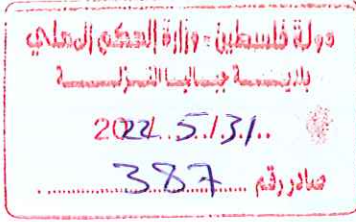 دولة فلسطين - وزارة الحكم المحلي
بلديـــة جباليا النـزلـــة
2022.5.131..
صادر رقم ...387...